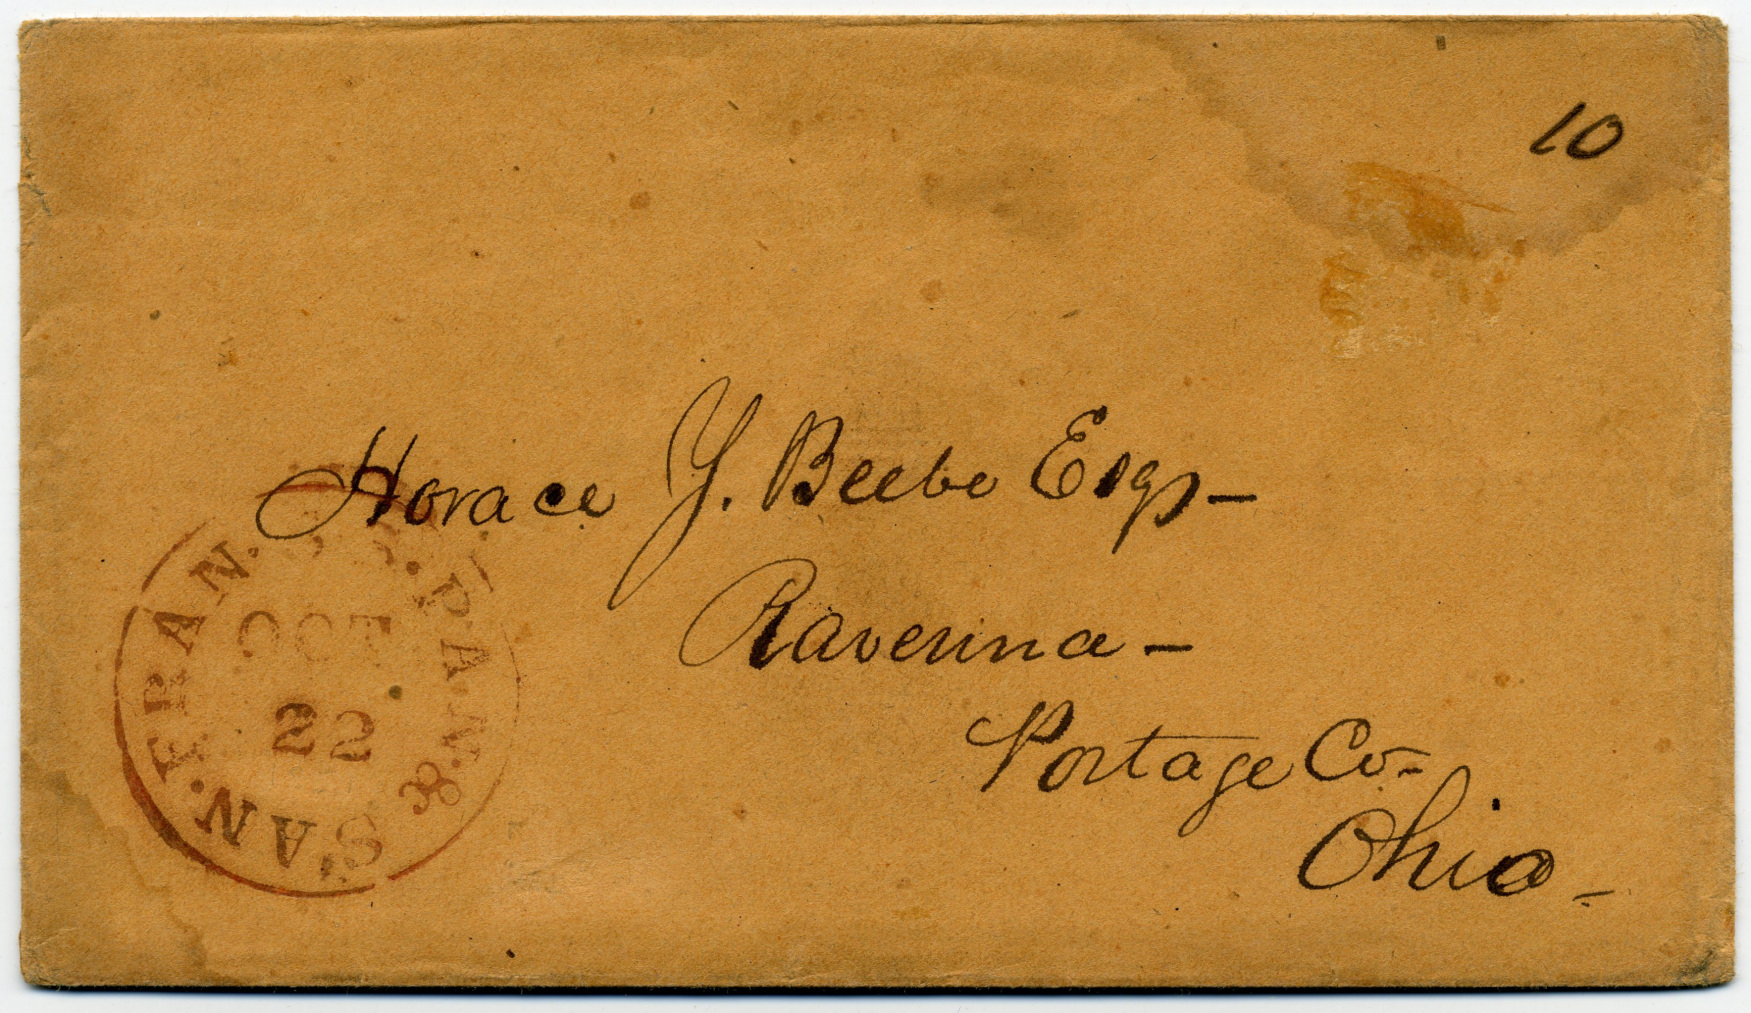 10
Horace Y. Beebe Esqr-
Ravenna-
Portage Co-
Ohio-
PAN. & SAN. FRAN. S.S.
OCT
22